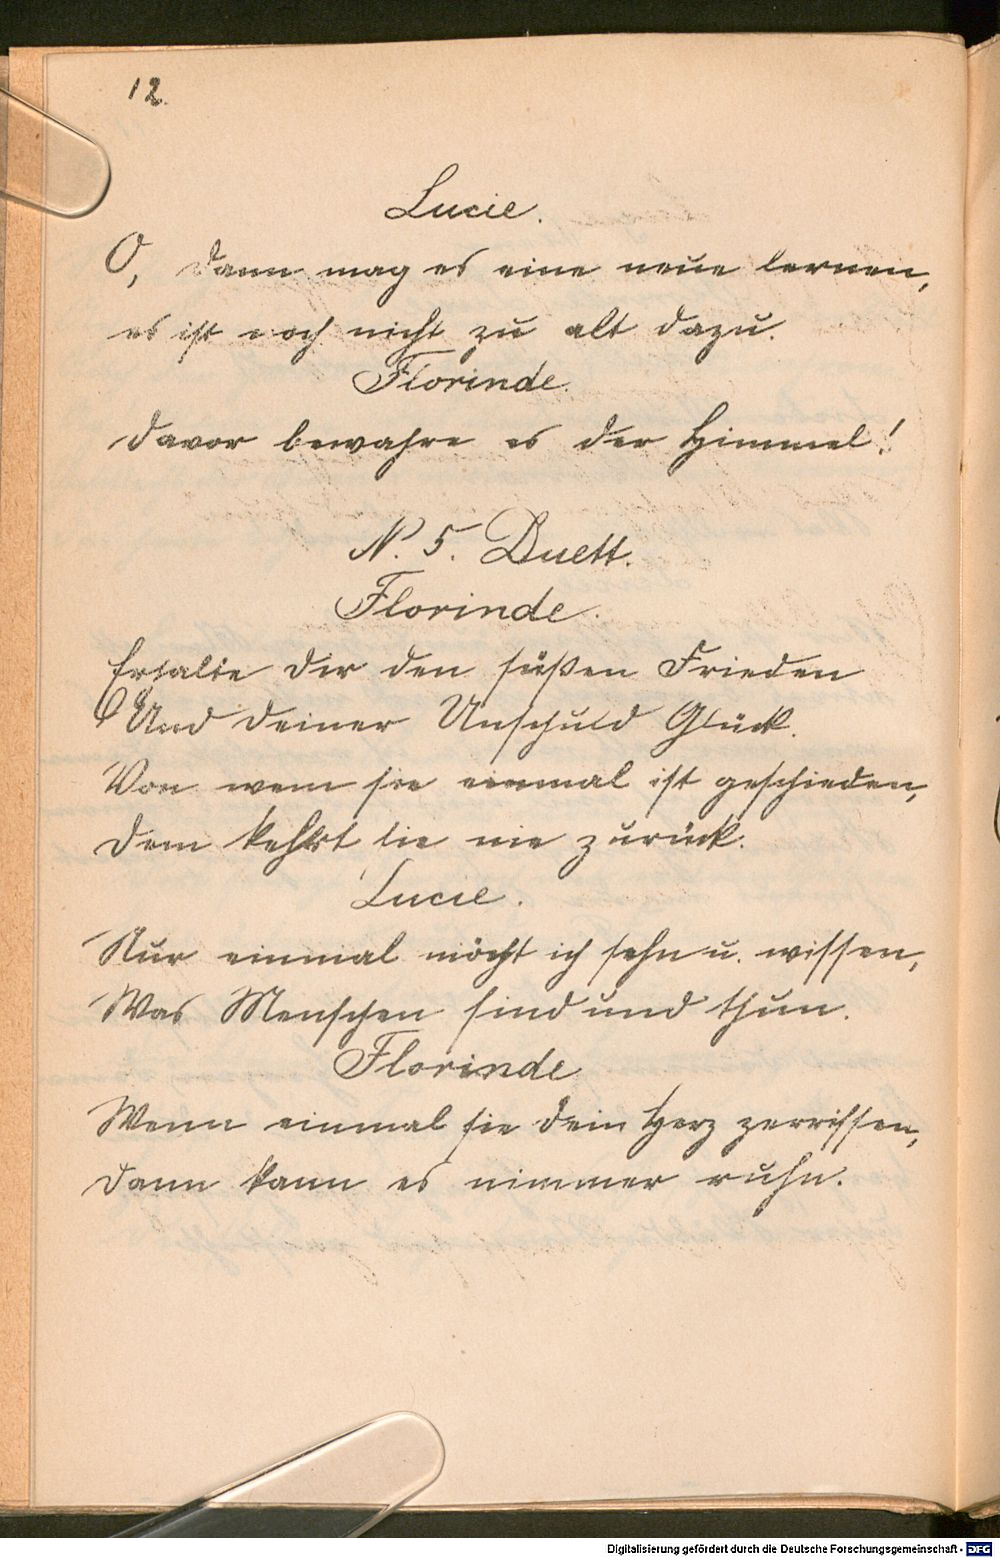 12.
Lucie.
O, dann mag es eine neue lernen,
es ist noch nicht zu alt dazu.
Florinde.
Davor bewahre es der Himmel!
N. 5. Duett.
Florinde.
Erhalte dir den süßen Frieden
Und deiner Unschuld Glück.
Von wem sie einmal ist geschieden,
Dem kehrt sie nie zurück.
Lucie.
Nur einmal möcht ich sehn u. wissen,
Was Menschen sind und thun.
Florinde
Wenn einmal sie dein Herz zerrissen,
Dann kann es nimmer ruhn.
Digitalisierung gefördert durch die Deutsche Forschungsgemeinschaft - DFG